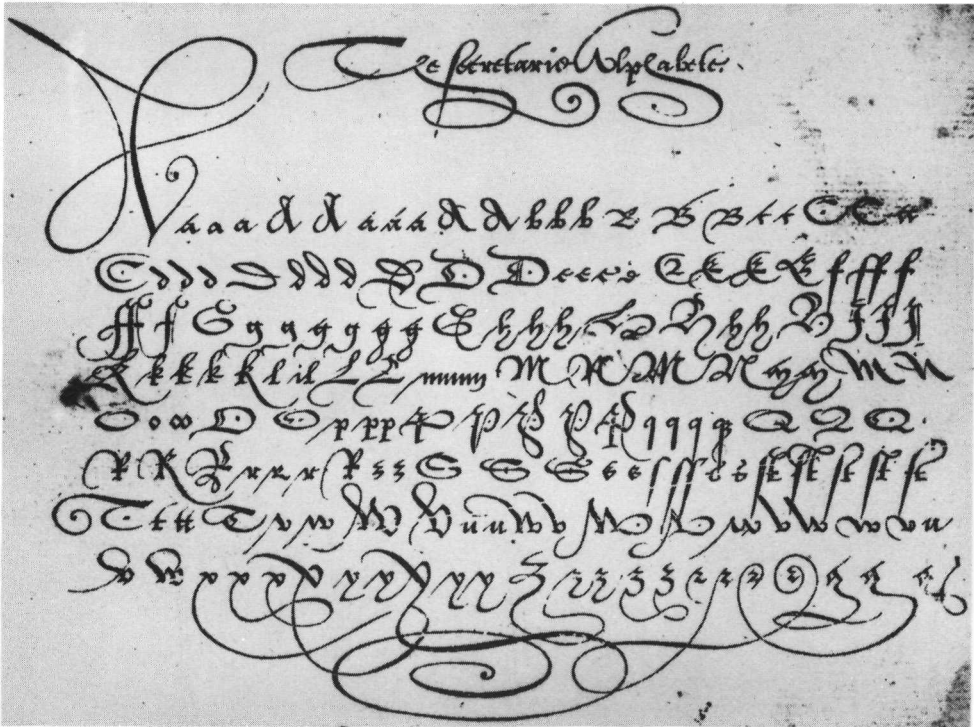 The Secretarie Alphabete.
A a a a A A a a a A A b b b B B B c c C C cc
C d d d D d d d D D D e e e e E E E E f ff f
ff f G g g g g g g G h h h H H h h H I I I
K k k k K l il L L M M M M
O o oo O O p pp P p p p P q q q q Q Q Q
R R R r r r R S S S s s ſ ſſ s s
T t tt T v w W V u u W v w V W w v u
v w x x x X y y y y Z z z z z